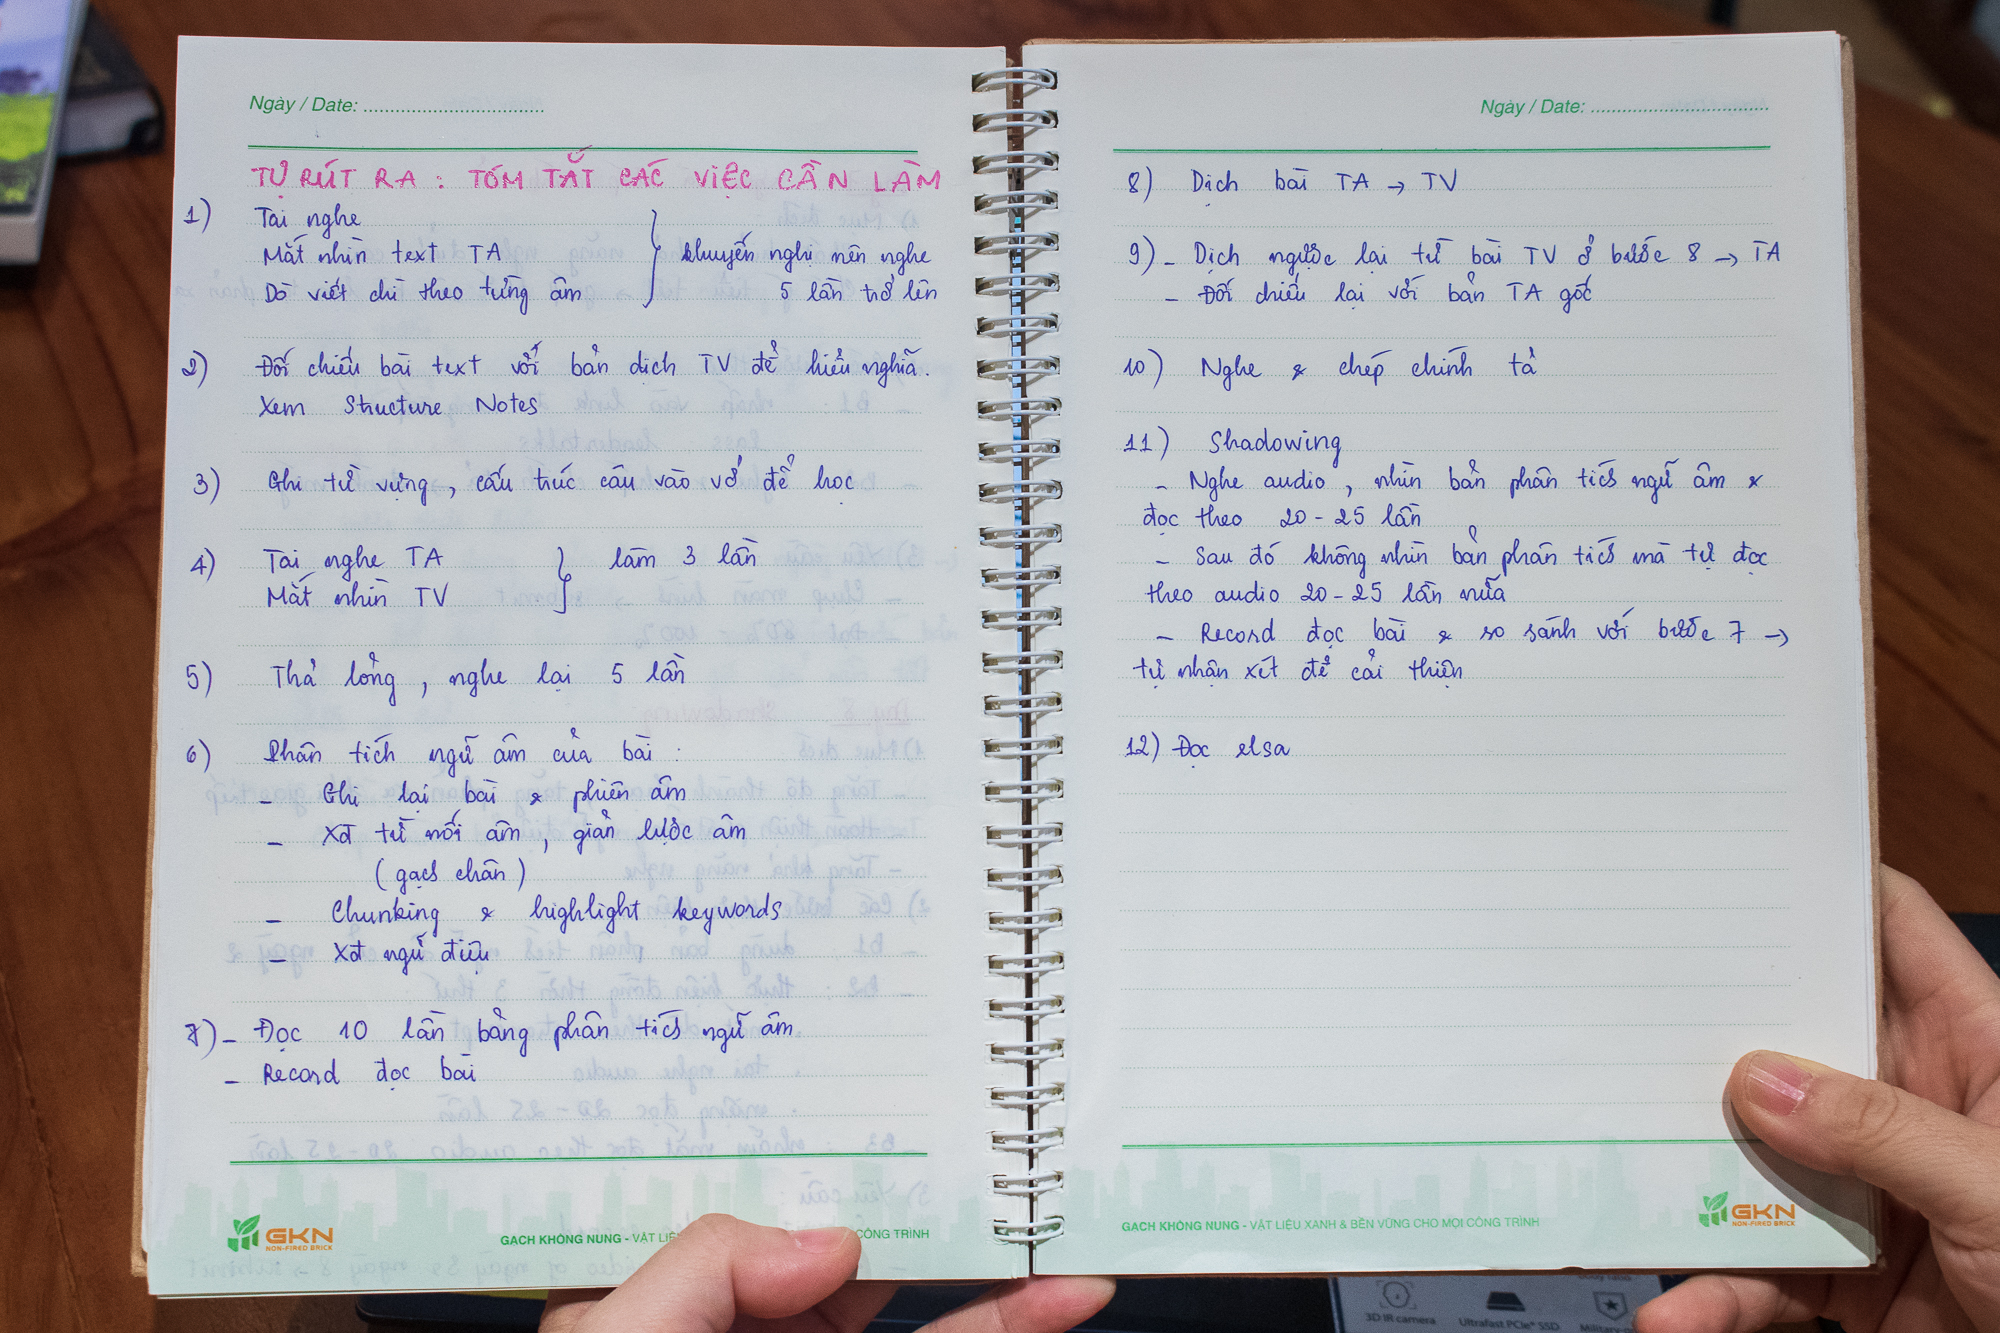 Ngày / Date: ................................
TỰ RÚT RA : TÓM TẮT CÁC VIỆC CẦN LÀM
1) Tai nghe
Mắt nhìn text TA
Dò viết chì theo từng âm
khuyến nghị nên nghe
5 lần trở lên
2) Đối chiếu bài text với bản dịch TV để hiểu nghĩa.
Xem Structure Notes
3) Ghi từ vựng, cấu trúc câu vào vở để học
4) Tai nghe TA
Mắt nhìn TV
làm 3 lần
5) Thả lỏng, nghe lại 5 lần
6) Phân tích ngữ âm của bài :
- Ghi lại bài & phiên âm
- Xđ từ nối âm, giản lược âm
(gạch chân)
- Chunking & highlight keywords
- Xđ ngữ điệu
7) - Đọc 10 lần bằng phân tích ngữ âm.
- Record đọc bài
GKN
NON-FIRED BRICK
GẠCH KHÔNG NUNG - VẬT LIỆ
CÔNG TRÌNH
Ngày / Date: ................................
8) Dịch bài TA → TV
9) - Dịch ngược lại từ bài TV ở bước 8 → TA
- Đối chiếu lại với bản TA gốc
10) Nghe & chép chính tả
11) Shadowing
- Nghe audio, nhìn bản phân tích ngữ âm &
đọc theo 20 - 25 lần
- Sau đó không nhìn bản phân tích mà tự đọc
theo audio 20 - 25 lần nữa
- Record đọc bài & so sánh với bước 7 →
tự nhận xét để cải thiện
12) Đọc elsa
GẠCH KHÔNG NUNG - VẬT LIỆU XANH & BỀN VỮNG CHO MỌI CÔNG TRÌNH
GKN
NON-FIRED BRICK
3D IR camera
Ultrafast PCIe® SSD